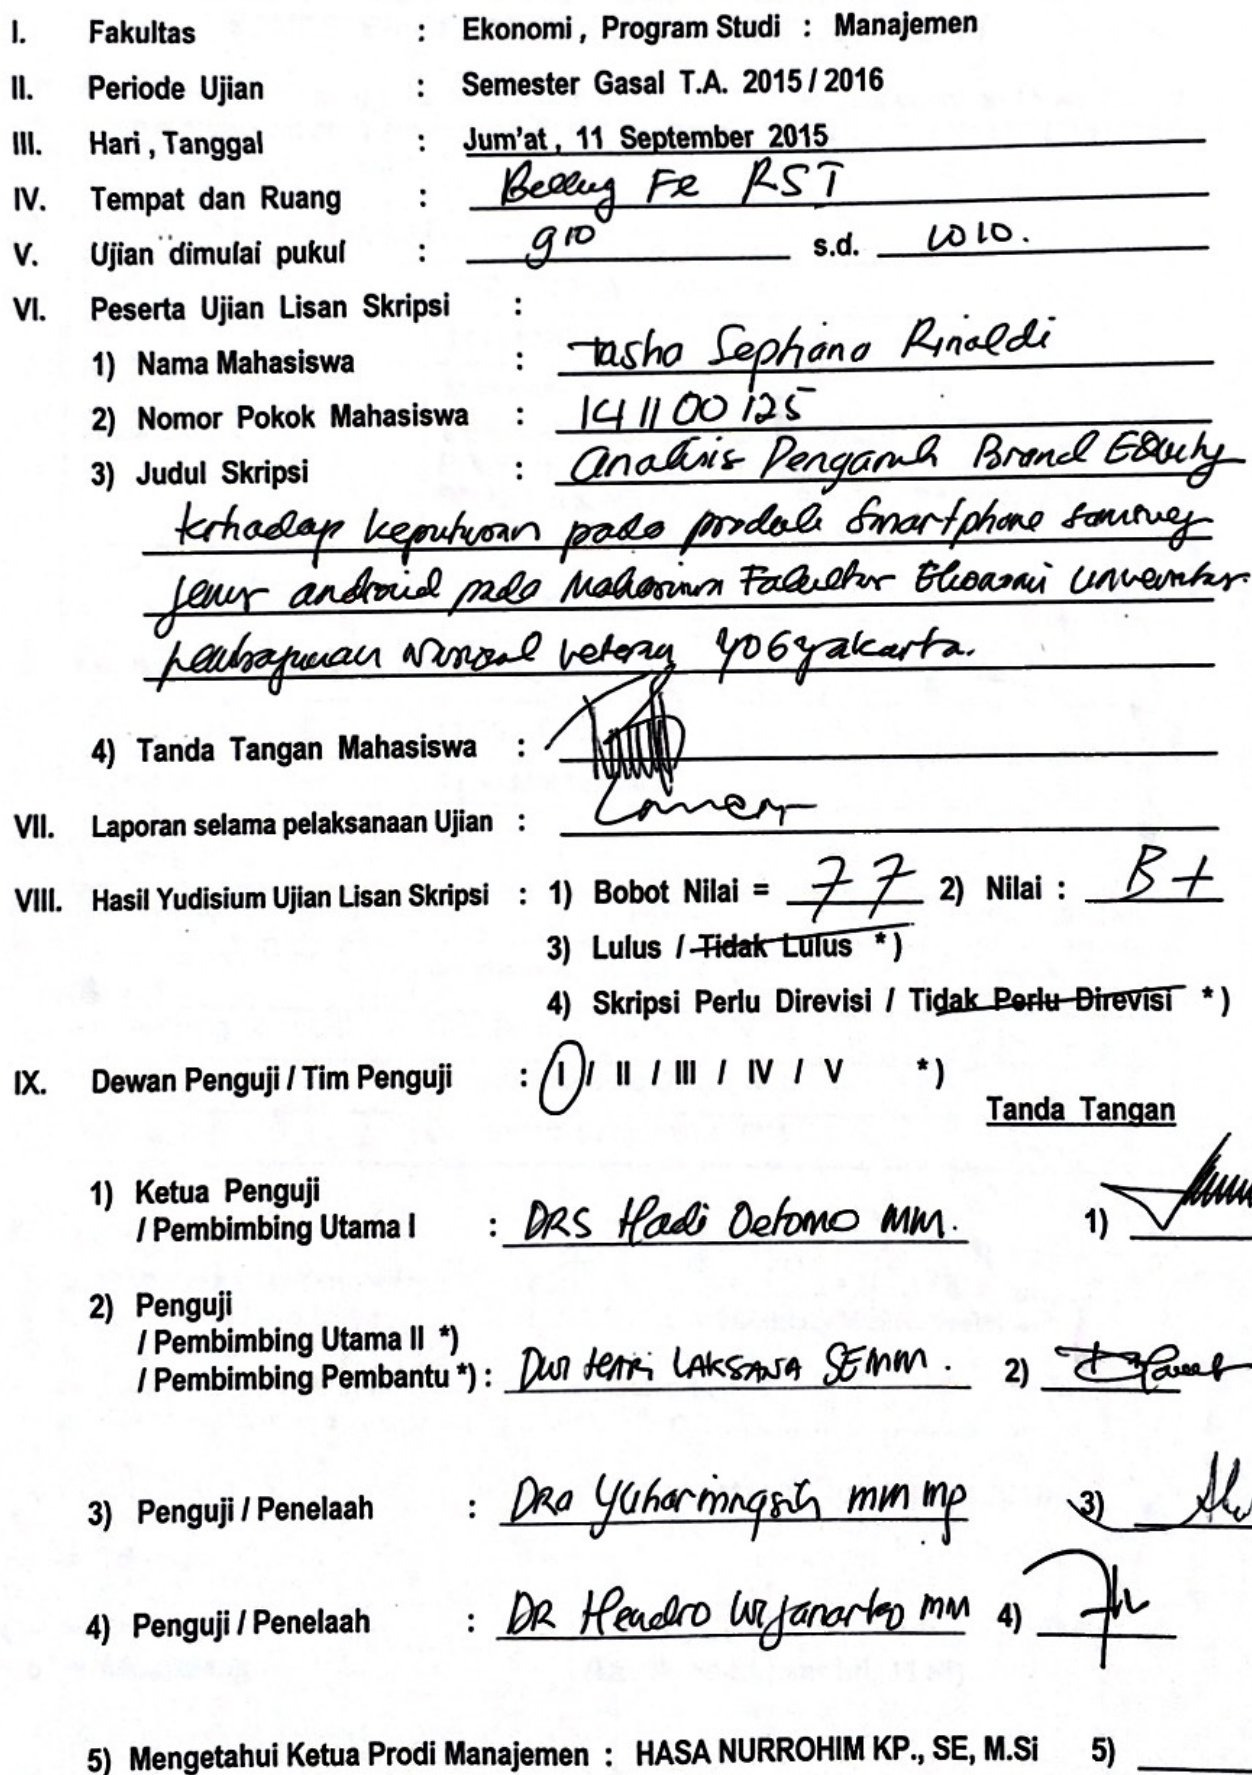 I. Fakultas : Ekonomi, Program Studi : Manajemen
II. Periode Ujian : Semester Gasal T.A. 2015/2016
III. Hari, Tanggal : Jum'at, 11 September 2015
IV. Tempat dan Ruang : FE RST
V. Ujian dimulai pukul : 9 10 s.d. 10 10.
VI. Peserta Ujian Lisan Skripsi :
1) Nama Mahasiswa : Tasha Septiana Rinaldi
2) Nomor Pokok Mahasiswa : 141100125
3) Judul Skripsi : Analisis Pengaruh Brand Equity
terhadap keputusan pada produk Smartphone Samsung
jenis android pada Mahasiswa Fakultas Ekonomi Universitas
pembangunan Nasional veteran Yogyakarta.
4) Tanda Tangan Mahasiswa :
VII. Laporan selama pelaksanaan Ujian :
VIII. Hasil Yudisium Ujian Lisan Skripsi : 1) Bobot Nilai = 77 2) Nilai : B+
3) Lulus / Tidak Lulus *)
4) Skripsi Perlu Direvisi / Tidak Perlu Direvisi *)
IX. Dewan Penguji / Tim Penguji : I / II / III / IV / V *)
Tanda Tangan
1) Ketua Penguji
/ Pembimbing Utama I : DRS Hadi Oetomo MM. 1)
2) Penguji
/ Pembimbing Utama II *)
/ Pembimbing Pembantu *) : Dwi Hari LAKSANA SE MM. 2)
3) Penguji / Penelaah : DRA Yuharningsih MM MP 3)
4) Penguji / Penelaah : DR Hendro Wijanarko MM 4)
5) Mengetahui Ketua Prodi Manajemen : HASA NURROHIM KP., SE, M.Si 5)